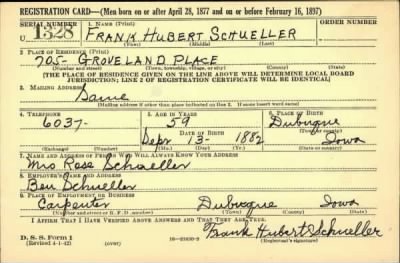 REGISTRATION CARD—(Men born on or after April 28, 1877 and on or before February 16, 1897)
SERIAL NUMBER 1. NAME (Print) ORDER NUMBER
U 1328 FRANK HUBERT SCHUELLER
(First) (Middle) (Last)
2. PLACE OF RESIDENCE (Print)
705- GROVELAND PLACE
(Number and street) (Town, township, village, or city) (County) (State)
[THE PLACE OF RESIDENCE GIVEN ON THE LINE ABOVE WILL DETERMINE LOCAL BOARD
JURISDICTION; LINE 2 OF REGISTRATION CERTIFICATE WILL BE IDENTICAL]
3. MAILING ADDRESS
Same
[Mailing address if other than place indicated on line 2. If same insert word same]
4. TELEPHONE 5. AGE IN YEARS 6. PLACE OF BIRTH
6037- 59 Dubuque
DATE OF BIRTH (Town or county)
Sept 13- 1882 Iowa
(Exchange) (Number) (Mo.) (Day) (Yr.) (State or country)
7. NAME AND ADDRESS OF PERSON WHO WILL ALWAYS KNOW YOUR ADDRESS
Mrs Rose Schueller
8. EMPLOYER'S NAME AND ADDRESS
Ben Schueller
9. PLACE OF EMPLOYMENT OR BUSINESS
Carpenter Dubuque Iowa
(Number and street or R. F. D. number) (Town) (County) (State)
I AFFIRM THAT I HAVE VERIFIED ABOVE ANSWERS AND THAT THEY ARE TRUE.
D. S. S. Form 1 Frank Hubert Schueller
(Revised 4-1-42) (over) (Registrant's signature)